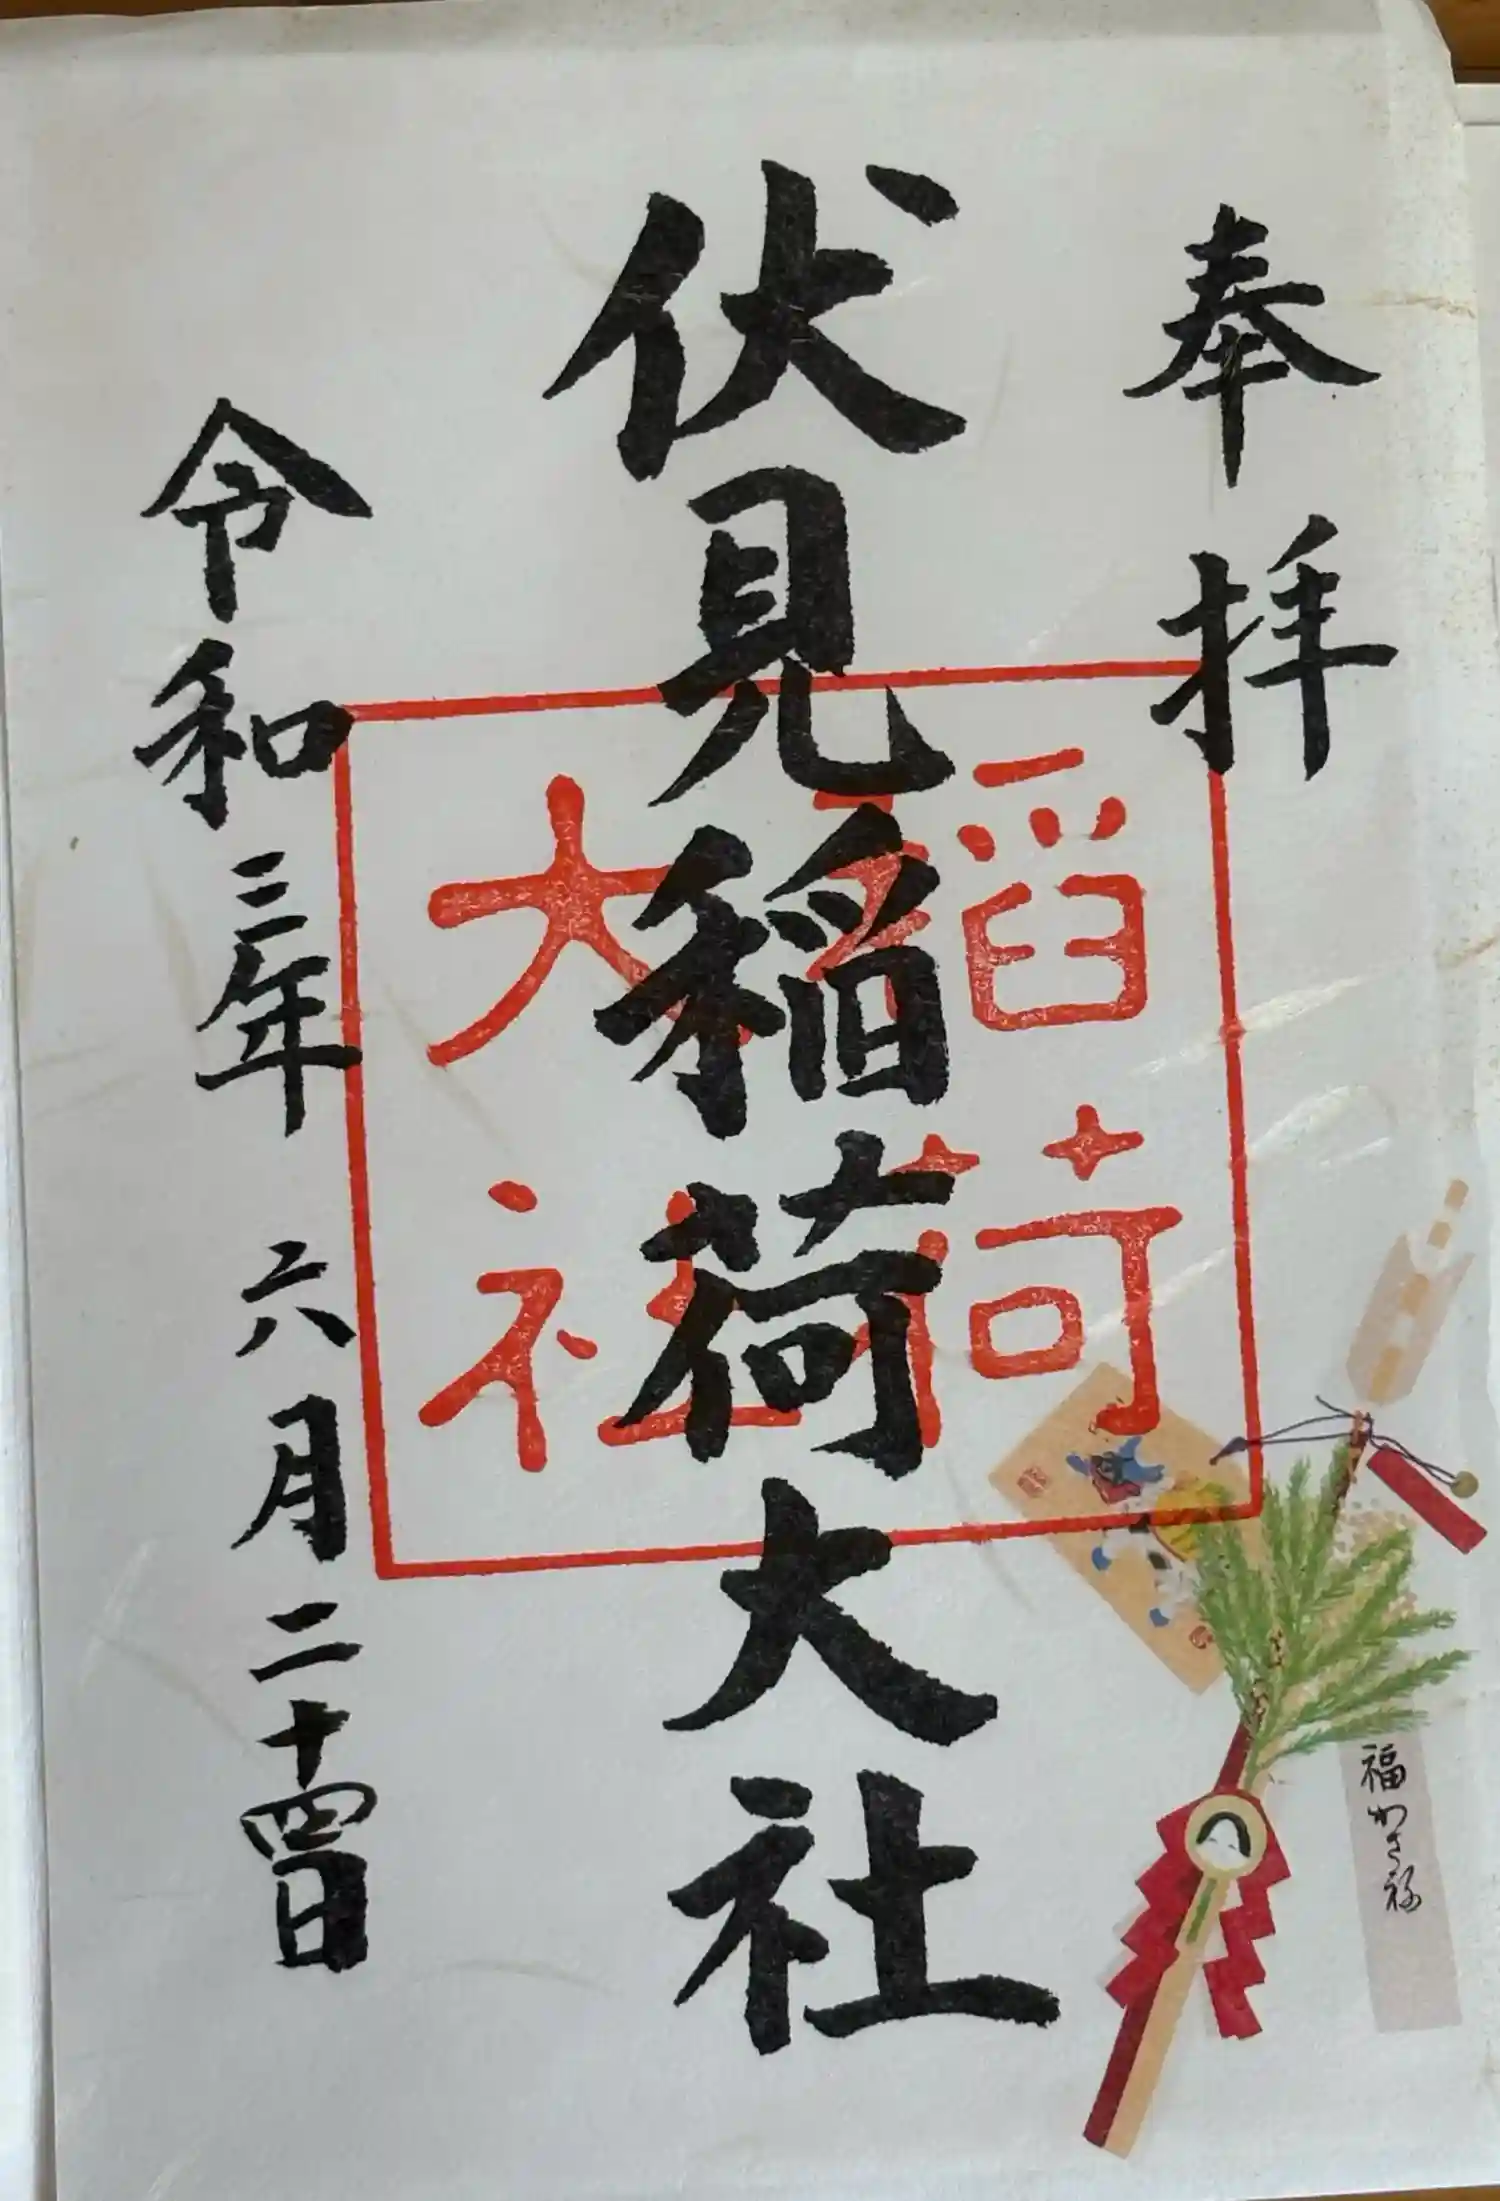 奉拝
伏見稲荷大社
稲荷
大社
令和三年 六月二十四日
福かさね